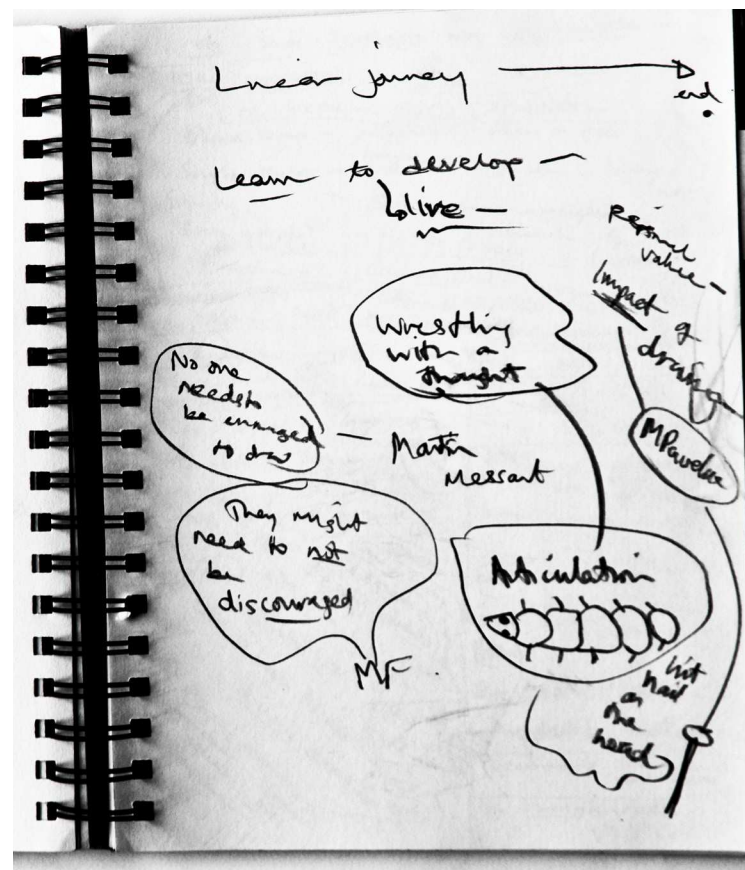 Linear journey
end
Learn to develop
live
Personal
value
impact of
drawing
Wrestling
with a
thought
No one
needs to
be encouraged
to draw
Martin
Messant
They might
need to not
be
discouraged
MF
Articulation
hit
nail
on
the
head